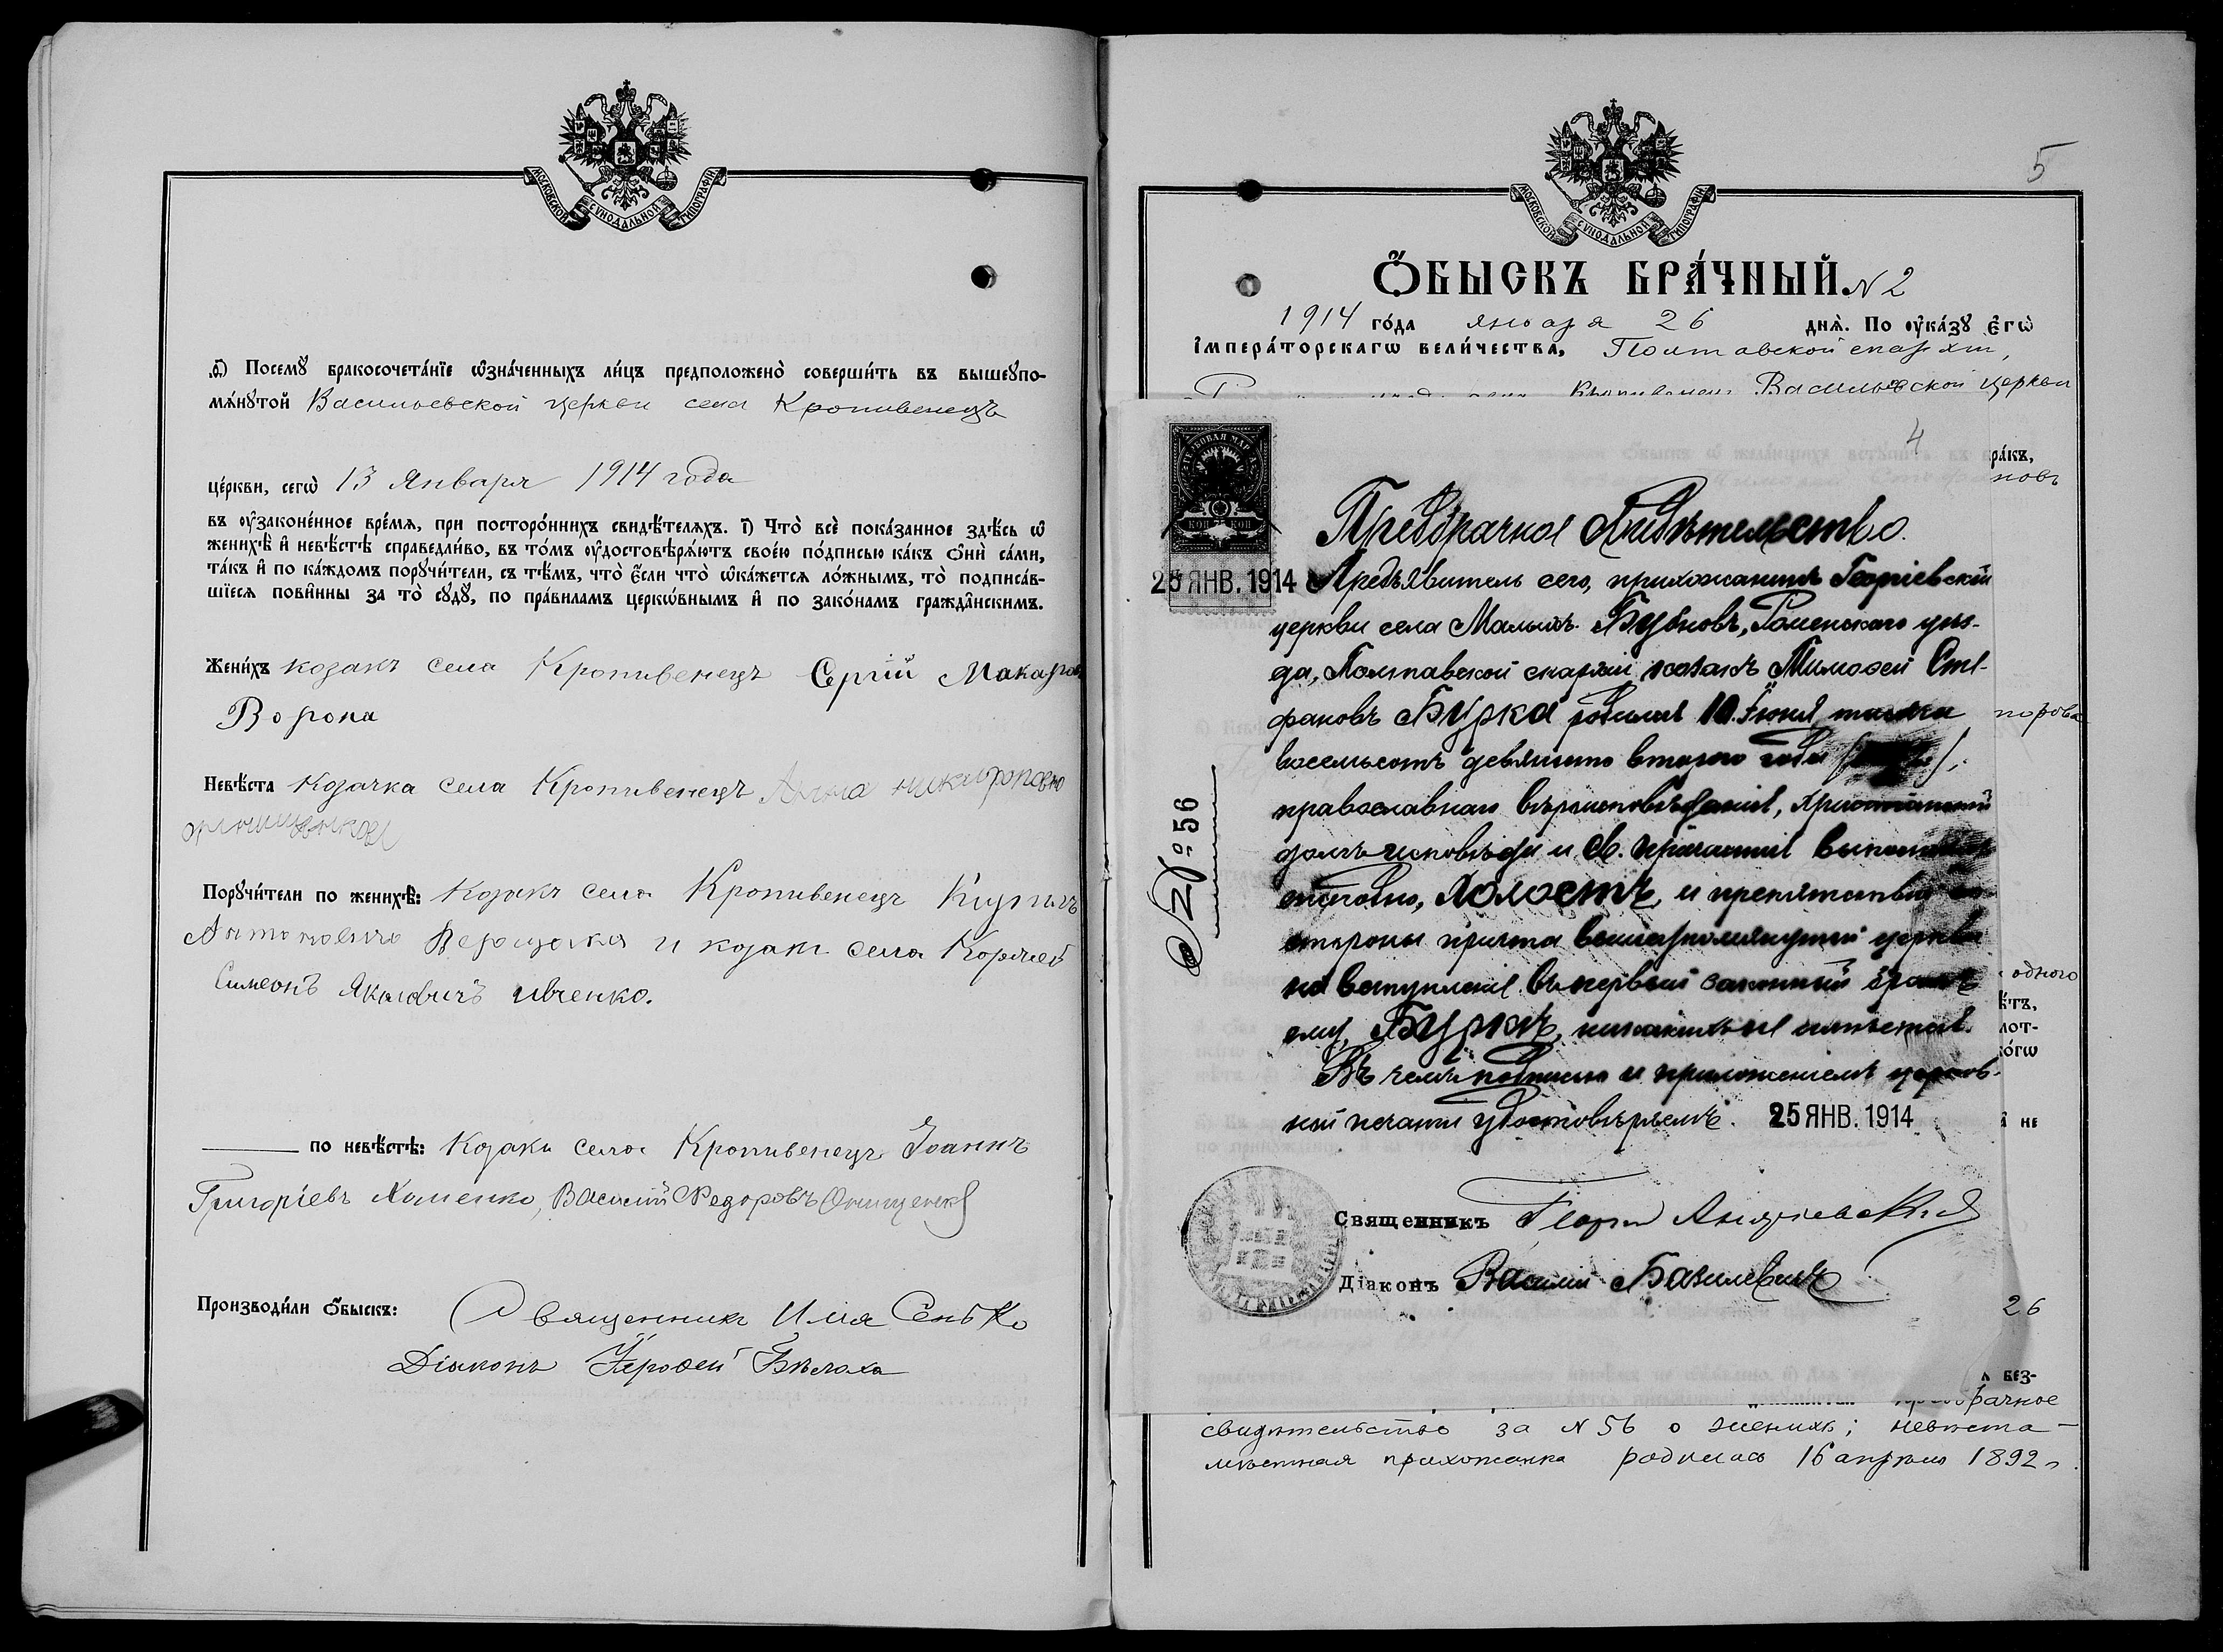 МОСКОВСКОЙ СѴНОДАЛЬНОЙ ТИПОГРАФІИ
Посемꙋ̀ бракосочета́нїе ѡ҆зна́ченныхъ ли́цъ предположено̀ соверши́ть въ вышеꙋпо-
мѧ́нꙋтой Васильевской церкви села Кропивенецъ
це́ркви, сегѡ̀ 13 Января 1914 года
въ ᲂу҆законе́нное вре́мѧ, при посторо́ннихъ свидѣ́телѧхъ. і҃) Что̀ всѐ пока́занное здѣ́сь ѡ҆
женихѣ̀ и҆ невѣ́стѣ справедли́во, въ то́мъ ᲂу҆достовѣрѧ́ютъ свое́ю по́дписью ка́къ ѻ҆нѝ са́ми,
та́къ и҆ по ка́ждомъ порꙋчи́тели, съ тѣ́мъ, что̀ є҆́сли что̀ ѡ҆ка́жетсѧ ло́жнымъ, то̀ подписа́в-
шїесѧ пови́нны за то̀ сꙋдꙋ̀, по пра́виламъ церкѡ́внымъ и҆ по зако́намъ гражда̑нскимъ.
Жени́хъ козакъ села Кропивенецъ Сергій Макаров
Ворона
Невѣ́ста Козачка села Кропивенецъ Анна
Порꙋчи́тели по женихѣ̀: Козакъ села Кропивенецъ
и козакъ села
Симеонъ Яковичъ Ивченко.
по невѣ́стѣ: Козаки села Кропивенецъ Іоаннъ
Григоріевъ Хоменко, Василій Федоровъ Онищенко
Производи́ли ѻ҆́быскъ: Священникъ Илія Сенько
Діаконъ Іерофей Бѣлоха
5
МОСКОВСКОЙ СѴНОДАЛЬНОЙ ТИПОГРАФІИ
Ѻ҆́БЫСКЪ БРА́ЧНЫЙ. N 2
1914 го́да января 26 днѧ̀. По ᲂу҆ка́зꙋ є҆гѡ̀
і҆мпера́торскагѡ вели́чества, Полтавской епархіи,
Васильевской церкви
4
ра́къ,
новъ
ГЕРБОВАЯ МАРКА
КОП 75 КОП
25 ЯНВ. 1914
Предбрачное Свидѣтельство.
Предъявитель сего, прихожанинъ Георгіевской
церкви села Малыхъ-Бубновъ, Роменскаго уѣз-
да, Полтавской епархіи козакъ Тимофей Сте-
фановъ Бурка родился 10 Іюня тысяча
восемьсотъ девяносто второго года
православнаго вѣроисповѣданія, христіанскій
долгъ исповѣди и св. причастія
холостъ, и препятствій со
стороны причта вышеупомянутой церкви
на вступленіе въ первый законный бракъ
ему, Буркѣ, никакихъ не имѣется.
Въ чемъ подписью и приложеніемъ церков-
ной печати удостовѣряемъ. 25 ЯНВ. 1914
№ 56
Священникъ Георгій
Діаконъ Василій Базилевичъ
одного
26
без-
предбрачное
свидѣтельство за N 56 о женихѣ; невѣста –
мѣстная прихожанка родилась 16 апрѣля 1892 г.